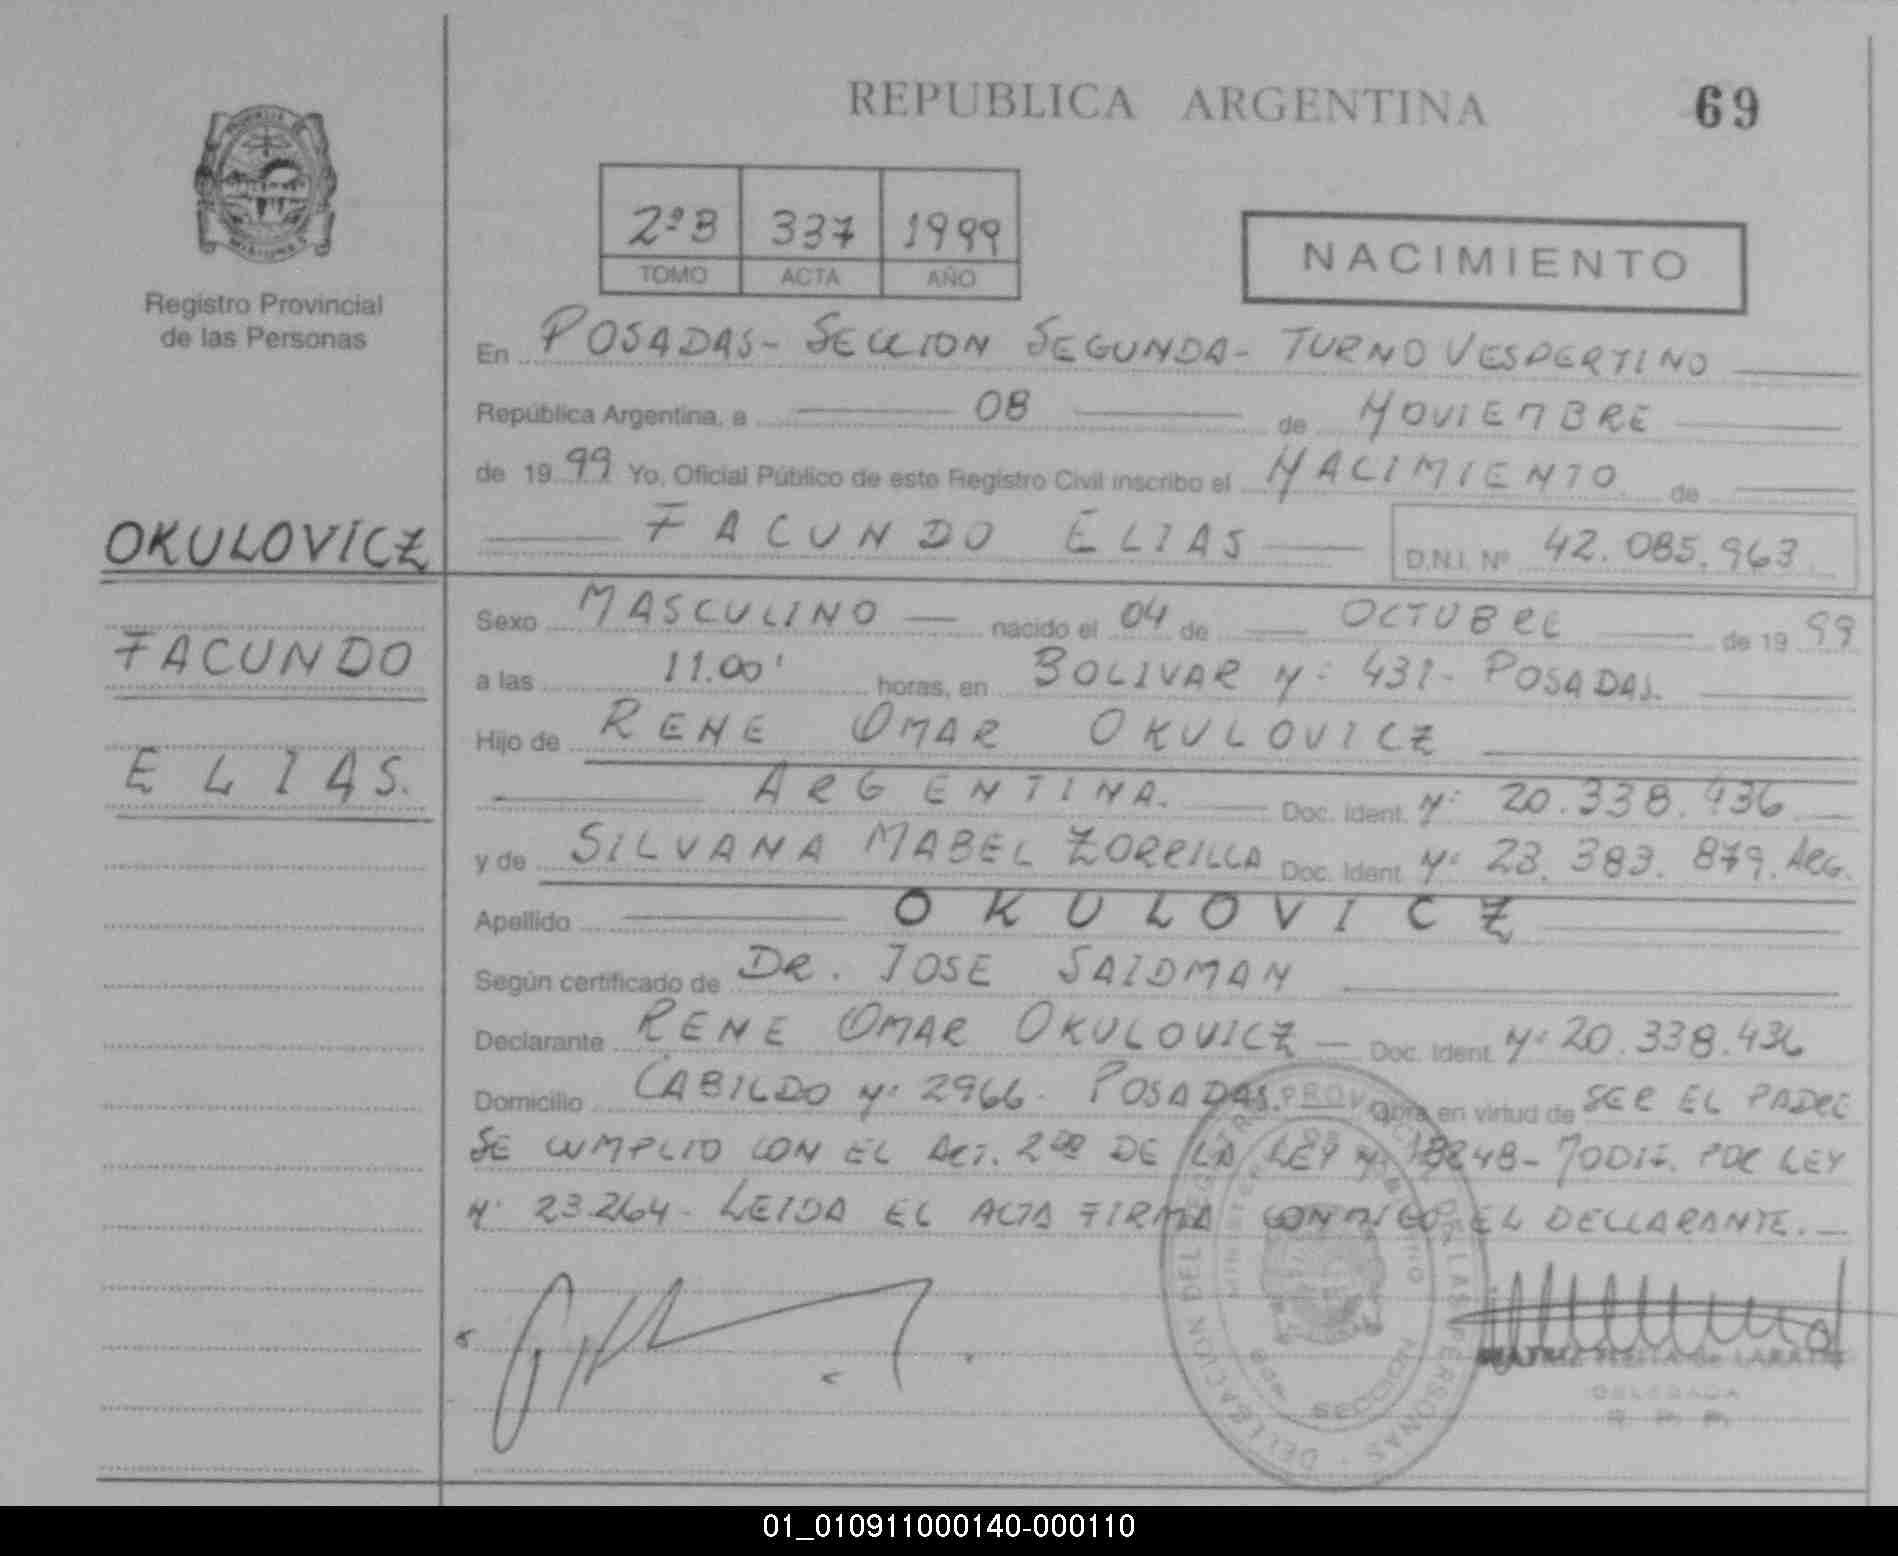 REPUBLICA ARGENTINA
69
2ºB 337 1999
TOMO ACTA AÑO
NACIMIENTO
Registro Provincial
de las Personas
OKULOVICZ
FACUNDO
ELIAS.
En POSADAS - SECCION SEGUNDA - TURNO VESPERTINO
República Argentina, a 08 de NOVIEMBRE
de 1999 Yo, Oficial Público de este Registro Civil inscribo el NACIMIENTO de
FACUNDO ELIAS D.N.I. Nº 42.085.963
Sexo MASCULINO nacido el 04 de OCTUBRE de 1999
a las 11.00' horas, en BOLIVAR Nº 431 - POSADAS.
Hijo de RENE OMAR OKULOVICZ
ARGENTINA. Doc. Ident. Nº 20.338.436
y de SILVANA MABEL ZORRILLA Doc. Ident. Nº 23.383.879. ARG.
Apellido OKULOVICZ
Según certificado de DR. JOSE SAIDMAN
Declarante RENE OMAR OKULOVICZ - Doc. Ident. Nº 20.338.436
Domicilio CABILDO Nº 2966. POSADAS. Obra en virtud de SER EL PADRE
SE CUMPLIO CON EL ART. 2do DE LA LEY Nº 18248 - MODIF. POR LEY
Nº 23.264 - LEIDA EL ACTA FIRMA CONMIGO EL DECLARANTE.
DELEGACION DEL REGISTRO PROVINCIAL DE LAS PERSONAS
MINISTERIO DE GOBIERNO
SECCION
DELEGADA
R. P. P.
01_010911000140-000110